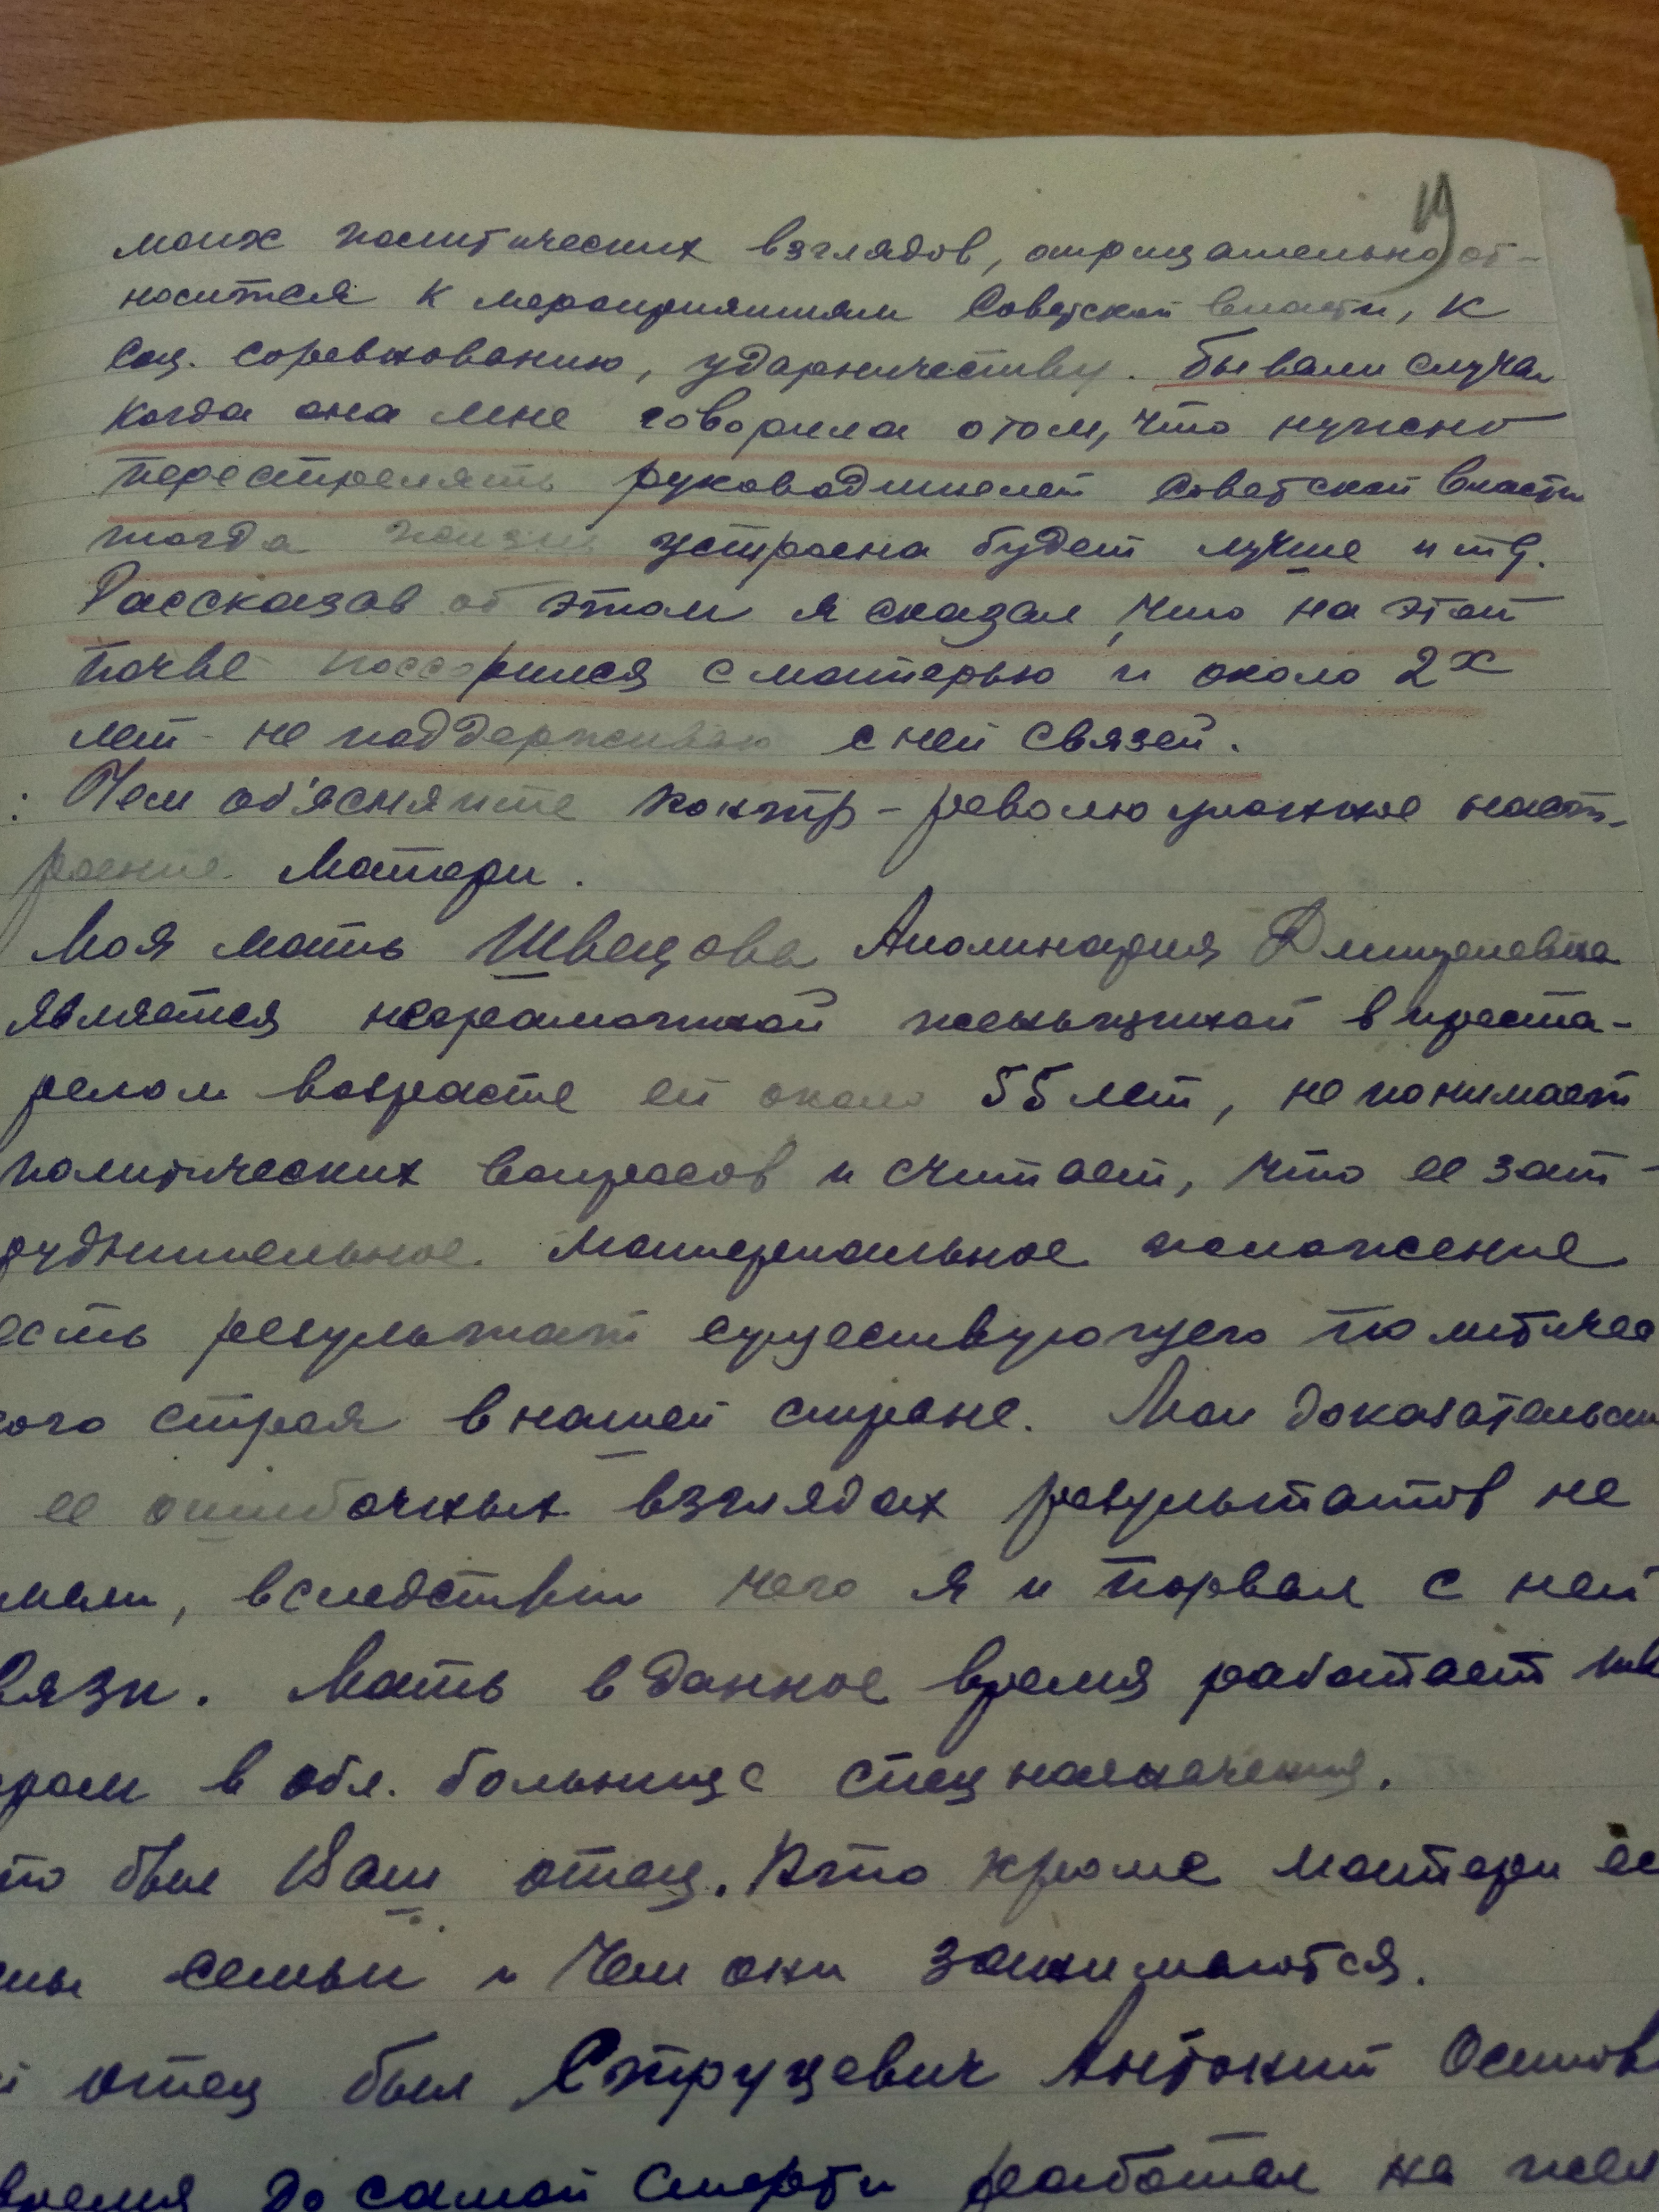 19
моих политических взглядов, отрицательно от-
носится к мероприятиям Советской власти, к
соц. соревнованию, ударничеству. Бывали случаи
когда она мне говорила отом, что нужно
перестрелять руководителей Советской власти
тогда жизнь устроена будет лучше и тд.
Рассказав об этом я сказал, что на этой
почве поссорился с матерью и около 2х
лет не поддерживаю с ней связей.
: Чем об'ясняите контр-революционное наст-
роение матери.
Моя мать Швецова Аполинария
является неграмотной женьщиной в преста-
релом возрасте ей около 55 лет, не понимает
политических вопросов и считает, что ее зат-
руднительное материальное положение
есть результат существующего политичес
кого строя в нашей стране. Мои доказательст
ее ошибочных взглядах результатов не
имели, вследствии чего я и порвал с ней
вязи. Мать в данное время работает
ром в обл. больнице спец назначения.
то был Ваш отец. Кто кроме матери ес
ны семьи и чем они занимаются.
й отец был Струцевич Антоний Осипов
время до самой смерти работал на жел